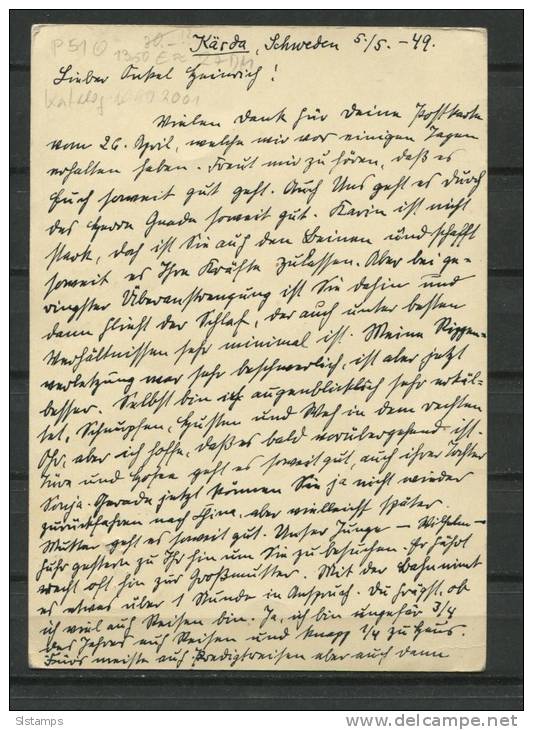 P 51 30.-
Kärda, Schweden 5./5. -49.
1350
Lieber Onkel Heinrich!
Katalog 2001
Vielen Dank für Deine Postkarte
vom 26. April, welche wir vor einigen Tagen
erhalten haben. Freut mir zu hören, daß es
Euch soweit gut geht. Auch Uns geht es durch
des Herrn Gnade soweit gut. Karin ist nicht
stark, doch ist Sie auf den Beinen und schafft
soweit es Ihre Kräfte zulassen. Aber bei ge-
ringster Überanstrengung ist Sie dahin und
dann flieht der Schlaf, der auch unter besten
Verhältnissen sehr minimal ist. Meine Rippen-
verletzung war sehr beschwerlich, ist aber jetzt
besser. Selbst bin ich augenblicklich sehr erkäl-
tet, Schnupfen, Husten und Weh in dem rechten
Ohr, aber ich hoffe, daß es bald vorübergehend ist.
und geht es soweit gut, auch ihrer Tochter
Sonja. Gerade jetzt können Sie ja nicht wieder
zurückfahren nach China, aber vielleicht später
Mutter geht es soweit gut. Unser Junge – Wilhelm –
fuhr gestern zu Ihr hin um Sie zu besuchen. Er fährt
recht oft hin zur Großmutter. Mit der Bahn nimt
es etwas über 1 Stunde in Anspruch. Du frägst, ob
ich viel auf Reisen bin. Ja, ich bin ungefär 3/4
des Jahres auf Reisen und knapp 1/4 zu Haus.
Fürs meiste auf Predigtreisen aber auch dann
Slstamps
delcampe.net